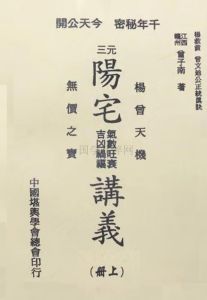 千年秘密 今天公開
楊救貧 曾文迪公正統真訣
江西贛州 曾子南 著
楊曾天機
三元
陽宅氣數旺衰吉凶禍福講義
（上册）
無價之寶
中國堪輿學會總會印行